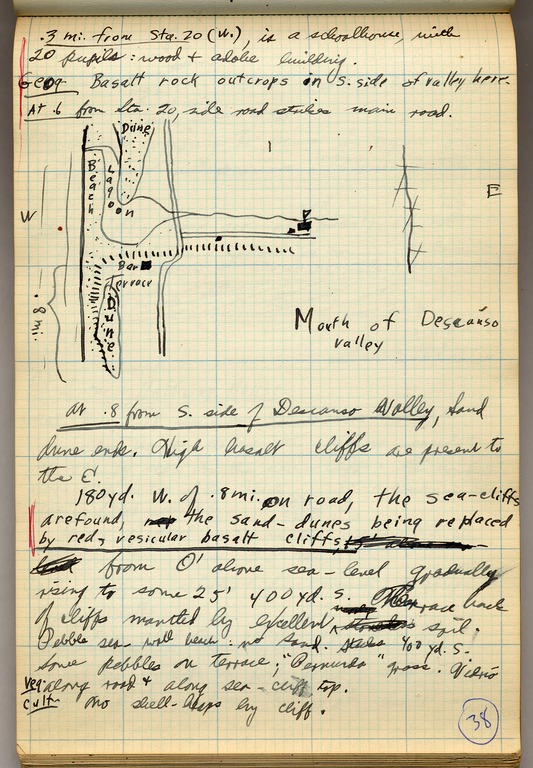 .3 mi. from Sta. 20 (W.), is a schoolhouse, with
20 pupils: wood & adobe building.
Geog Basalt rock outcrops in S. side of valley here.
At .6 from Sta. 20, side road strikes main road.
Dune
Beach
Lagoon
W
E
Bar
Terrace
Dune
.8 mi.
Mouth of Descanso
valley
At .8 from S. side of Descanso Valley, sand
dune ends. High basalt cliffs are present to
the E.
180 yd. W. of .8 mi. on road, the sea-cliffs
are found, the sand-dunes being replaced
by red, vesicular basalt cliffs,
from 0' above sea-level gradually
rising to some 25' 400 yd. S. Terrace back
of cliffs mantled by excellent soil.
Pebble sea-wall beach: no sand. 400 yd. S.
some pebbles on terrace; "Bermuda" grass. Vidrio
Veg. along road & along sea-cliff top.
Cult No shell-heaps by cliff.
38